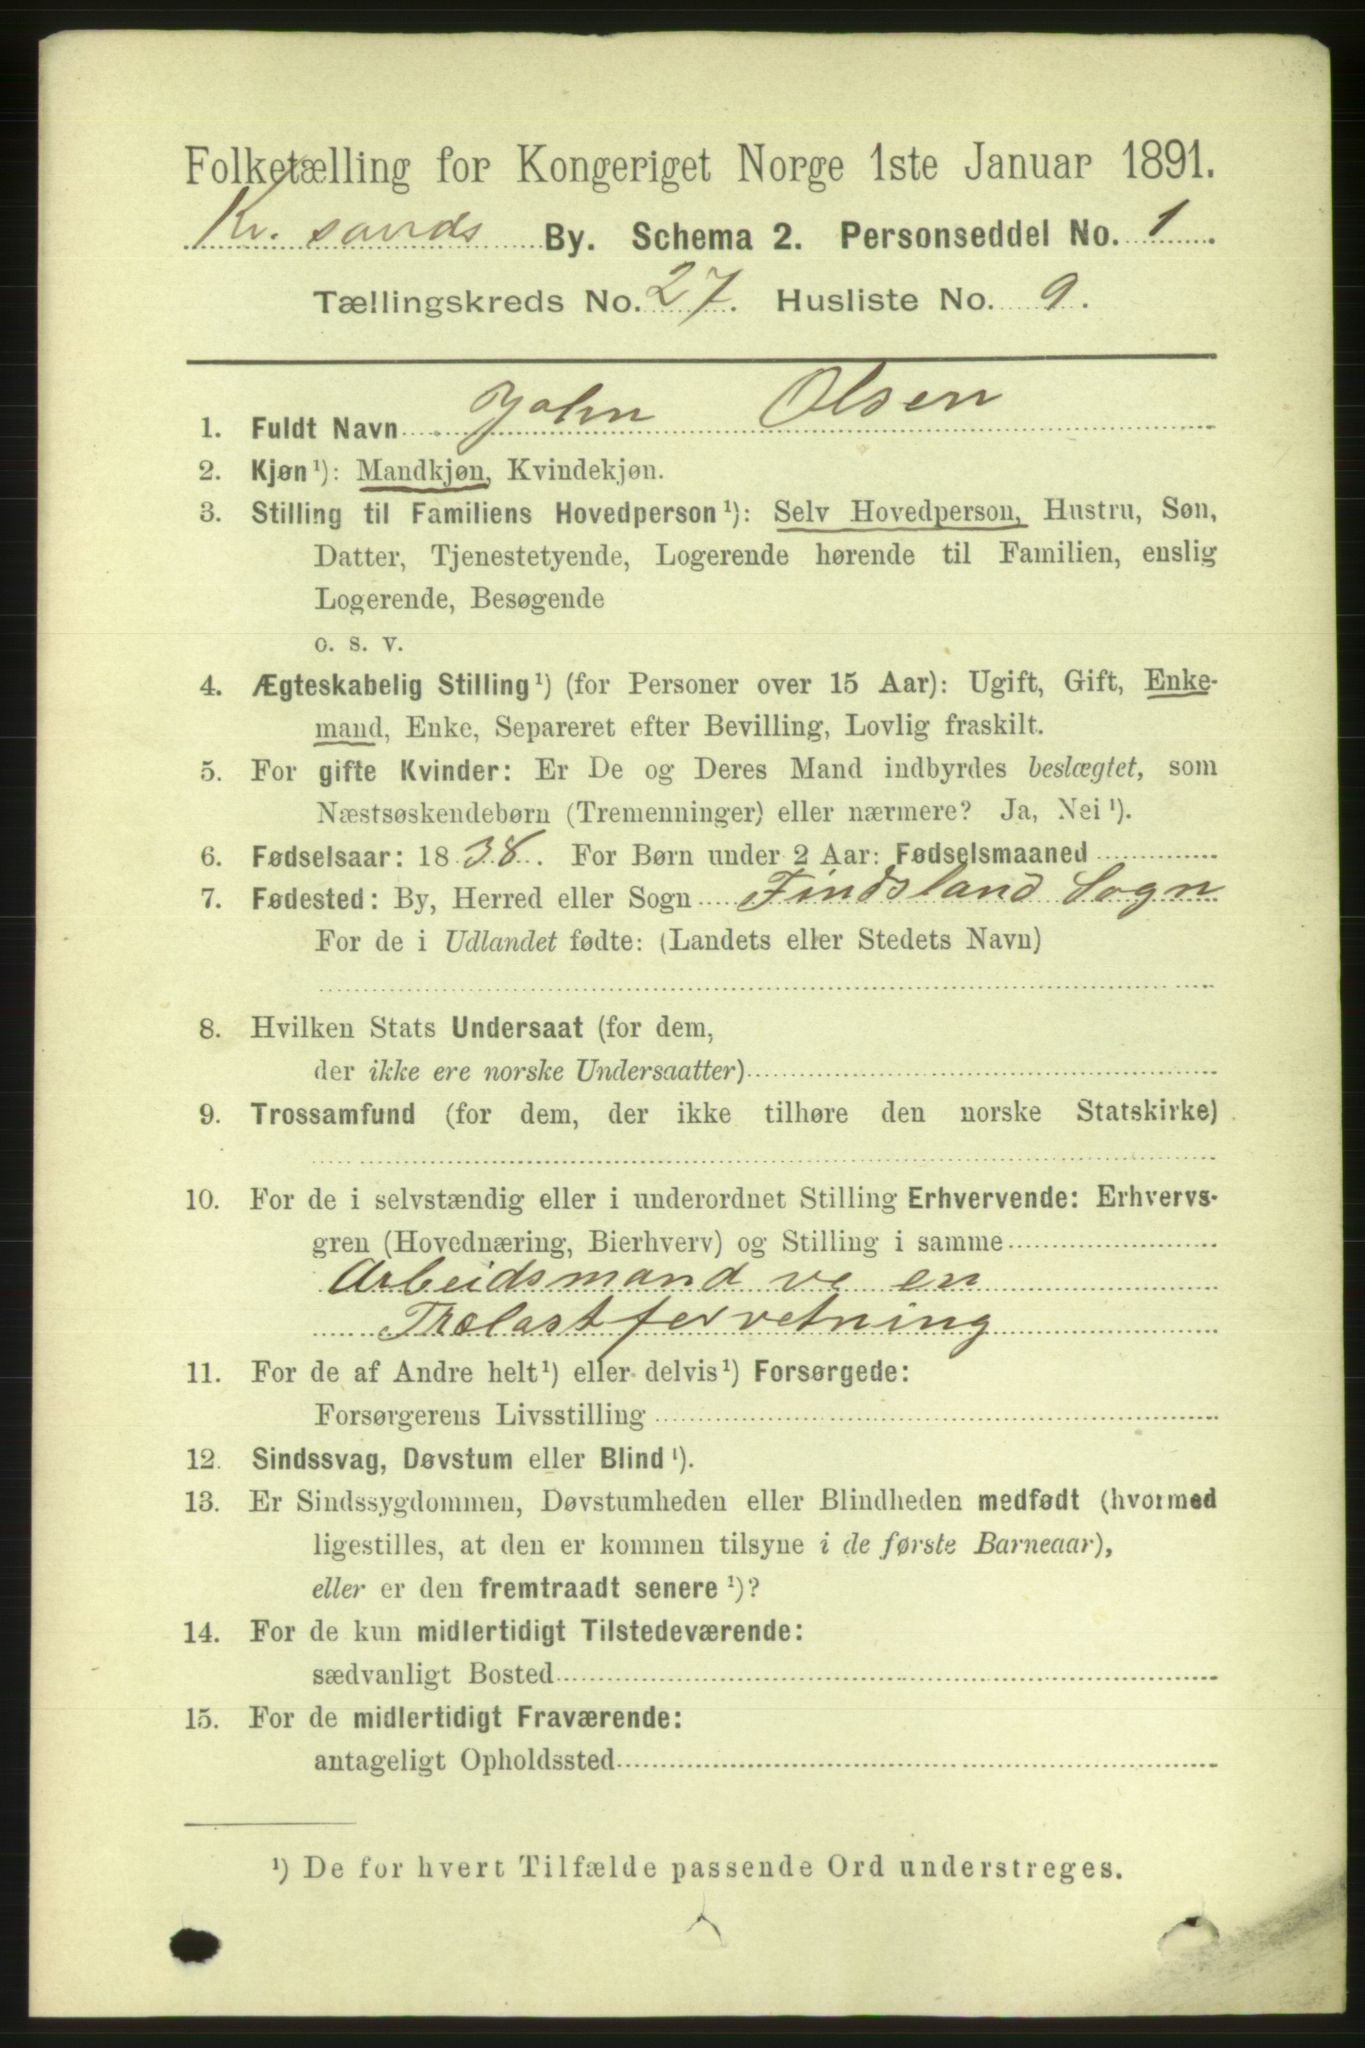 Folketælling for Kongeriget Norge 1ste Januar 1891.
Kr. sands By. Schema 2. Personseddel No. 1
Tællingskreds No. 27. Husliste No. 9.
1. Fuldt Navn John Olsen
2. Kjøn ¹): Mandkjøn, Kvindekjøn.
3. Stilling til Familiens Hovedperson ¹): Selv Hovedperson, Hustru, Søn,
Datter, Tjenestetyende, Logerende hørende til Familien, enslig
Logerende, Besøgende
o. s. v.
4. Ægteskabelig Stilling ¹) (for Personer over 15 Aar): Ugift, Gift, Enke-
mand, Enke, Separeret efter Bevilling, Lovlig fraskilt.
5. For gifte Kvinder: Er De og Deres Mand indbyrdes beslægtet, som
Næstsøskendebørn (Tremenninger) eller nærmere? Ja, Nei ¹).
6. Fødselsaar: 1838. For Børn under 2 Aar: Fødselsmaaned
7. Fødested: By, Herred eller Sogn Findsland Sogn
For de i Udlandet fødte: (Landets eller Stedets Navn)
8. Hvilken Stats Undersaat (for dem,
der ikke ere norske Undersaatter)
9. Trossamfund (for dem, der ikke tilhøre den norske Statskirke)
10. For de i selvstændig eller i underordnet Stilling Erhvervende: Erhvervs-
gren (Hovednæring, Bierhverv) og Stilling i samme
Arbeidsmand ve en
Trælastforretning
11. For de af Andre helt ¹) eller delvis ¹) Forsørgede:
Forsørgerens Livsstilling
12. Sindssvag, Døvstum eller Blind ¹).
13. Er Sindssygdommen, Døvstumheden eller Blindheden medfødt (hvormed
ligestilles, at den er kommen tilsyne i de første Barneaar),
eller er den fremtraadt senere ¹)?
14. For de kun midlertidigt Tilstedeværende:
sædvanligt Bosted
15. For de midlertidigt Fraværende:
antageligt Opholdssted
¹) De for hvert Tilfælde passende Ord understreges.